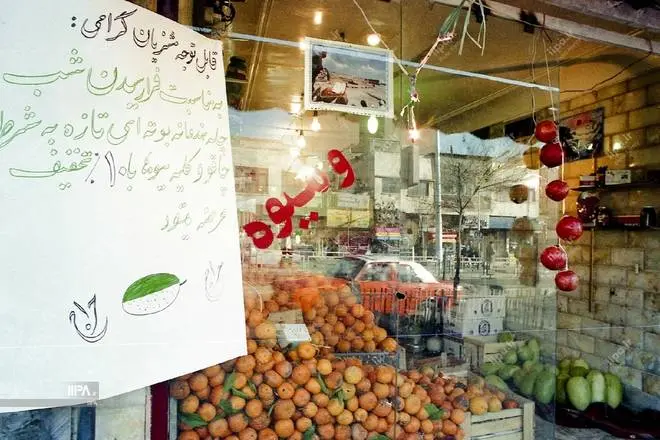 قابل توجه مشتریان گرامی :
به مناسبت فرا رسیدن شب
چله هندوانه بوته ای تازه به شرط
چاقو و کلیه میوه‌ها با ۱۰٪ تخفیف
عرضه میشود
حراج
و میوه
IIPA